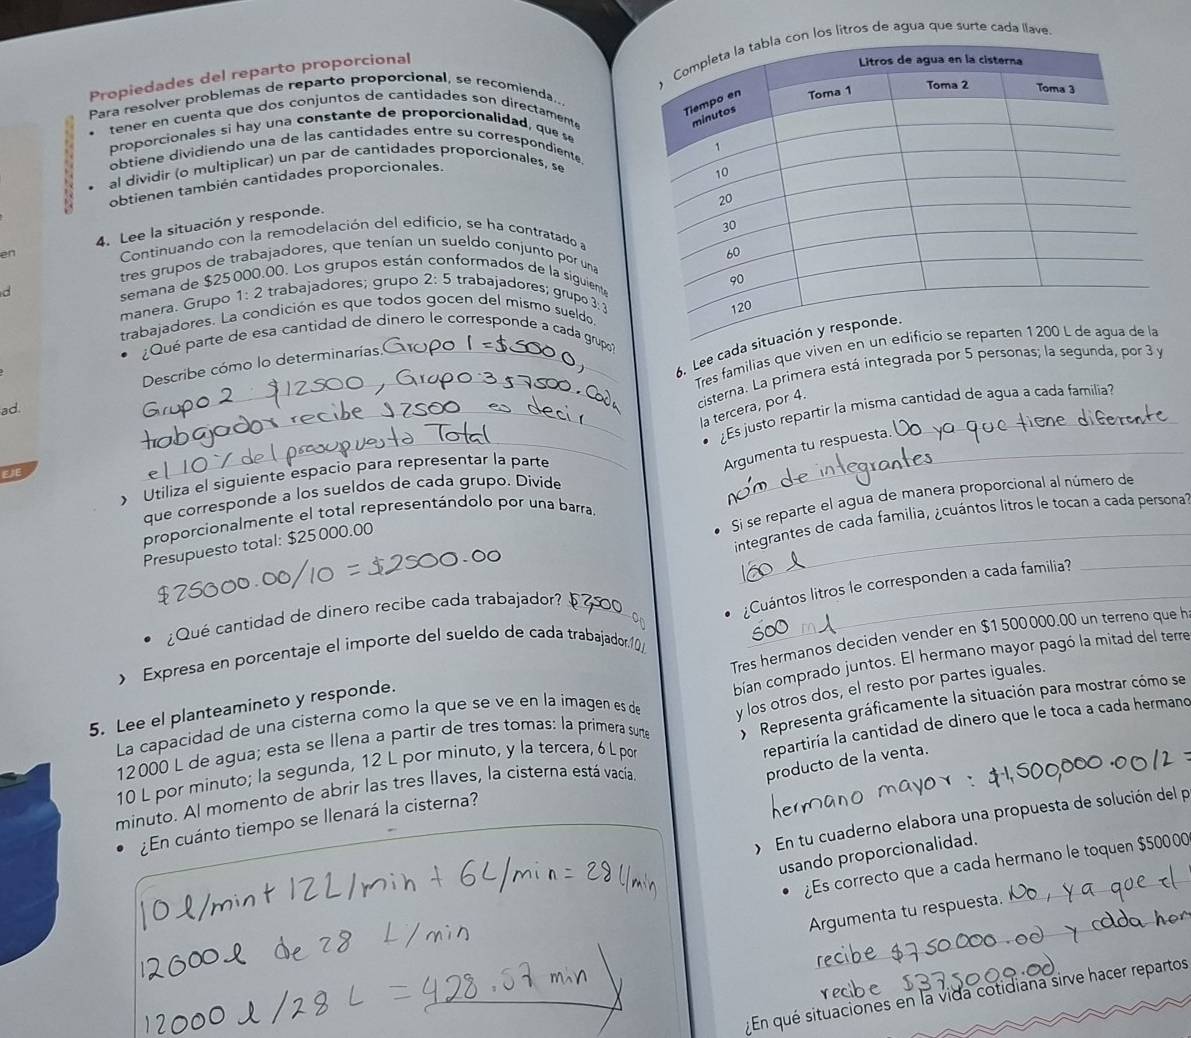 Propiedades del reparto proporcional
Para resolver problemas de reparto proporcional, se recomienda...
• tener en cuenta que dos conjuntos de cantidades son directamente
proporcionales si hay una constante de proporcionalidad, que se
obtiene dividiendo una de las cantidades entre su correspondiente.
• al dividir (o multiplicar) un par de cantidades proporcionales, se
obtienen también cantidades proporcionales.
4. Lee la situación y responde.
Continuando con la remodelación del edificio, se ha contratado a
tres grupos de trabajadores, que tenían un sueldo conjunto por una
semana de $25000.00. Los grupos están conformados de la siguiente
manera. Grupo 1: 2 trabajadores; grupo 2: 5 trabajadores; grupo 3: 3
trabajadores. La condición es que todos gocen del mismo sueldo.
• ¿Qué parte de esa cantidad de dinero le corresponde a cada grupo?
Describe cómo lo determinarías. Grupo 1 = $5000,
Grupo 2 $12500, Grupo 3 $7500. Cada
trabajador recibe $2500 es decir
el 10% del presupuesto Total
› Utiliza el siguiente espacio para representar la parte
que corresponde a los sueldos de cada grupo. Divide
proporcionalmente el total representándolo por una barra.
Presupuesto total: $25000.00
$25000.00/10 = $2500.00
• ¿Qué cantidad de dinero recibe cada trabajador? $2500.00
› Expresa en porcentaje el importe del sueldo de cada trabajador. 10%
5. Lee el planteamineto y responde.
La capacidad de una cisterna como la que se ve en la imagen es de
12000 L de agua; esta se llena a partir de tres tomas: la primera surte
10 L por minuto; la segunda, 12 L por minuto, y la tercera, 6 L por
minuto. Al momento de abrir las tres llaves, la cisterna está vacía.
• ¿En cuánto tiempo se llenará la cisterna?
10 l/min + 12 L/min + 6L/min = 28 L/min
12000 l de 28 L/min
12000 l/28 L = 428.57 min
en
d
ad.
EJE
› Completa la tabla con los litros de agua que surte cada llave.
Litros de agua en la cisterna
Tiempo en minutos Toma 1 Toma 2 Toma 3
1
10
20
30
60
90
120
6. Lee cada situación y responde.
Tres familias que viven en un edificio se reparten 1200 L de agua de la
cisterna. La primera está integrada por 5 personas; la segunda, por 3 y
la tercera, por 4.
• ¿Es justo repartir la misma cantidad de agua a cada familia?
Argumenta tu respuesta. No ya que tiene diferente
núm de integrantes
• Si se reparte el agua de manera proporcional al número de
integrantes de cada familia, ¿cuántos litros le tocan a cada persona?
100 l
• ¿Cuántos litros le corresponden a cada familia?
500 ml
Tres hermanos deciden vender en $1500000.00 un terreno que ha
bían comprado juntos. El hermano mayor pagó la mitad del terre
y los otros dos, el resto por partes iguales.
› Representa gráficamente la situación para mostrar cómo se
repartiría la cantidad de dinero que le toca a cada hermano
producto de la venta.
hermano mayor: $1,500,000.00/2 =
› En tu cuaderno elabora una propuesta de solución del p
usando proporcionalidad.
• ¿Es correcto que a cada hermano le toquen $50000
Argumenta tu respuesta. No, ya que el
recibe $750.000.00 y cada her
recibe $375000.00
¿En qué situaciones en la vida cotidiana sirve hacer repartos